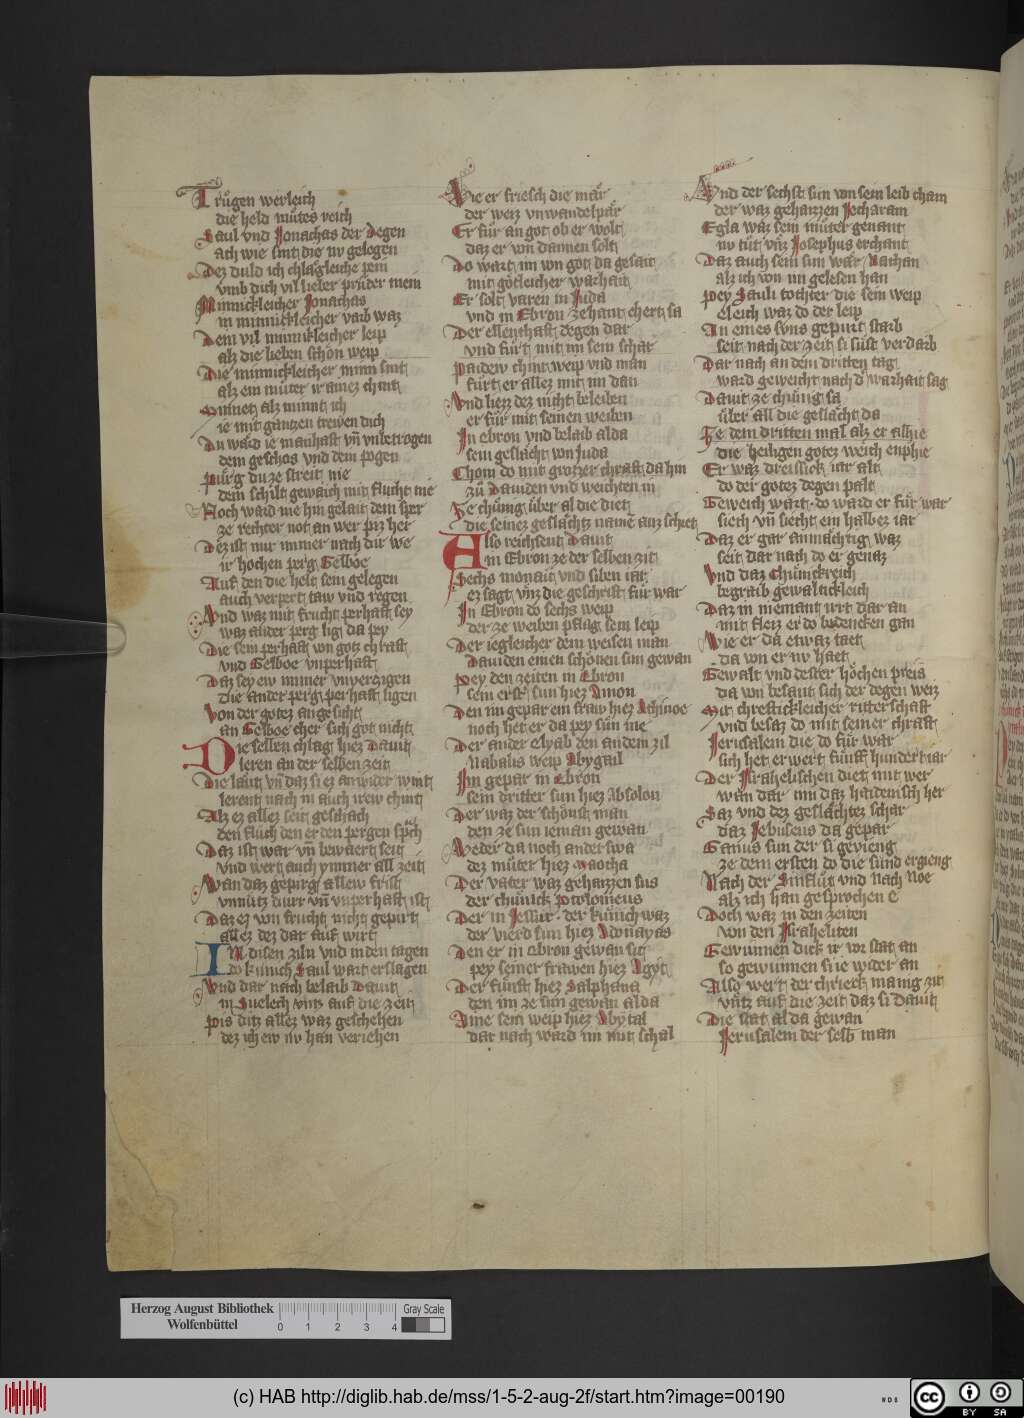 Trůgen werleich
die held můtes reich
Saul vnd Jonathas der degen
ach wie sint die nv gelegen
Dez duld ich chlagleiche pein
vmb dich vil lieber průder mein
Minnickleicher Jonathas
in minnickleicher varb waz
Dem vil minnikleicher leip
alz die lieben schön weip
Die minnickleicher minn sint
alz ein můter ir ainez chint
minnet alz minnt ich
ie mit gantzen trewen dich
Du ward ie manhaft vñ vnbetrogen
dem geschos vnd dem pogen
pürg du ze streit nie
dem schilt gewaich mit flucht nie
Noch ward nie hin gelait dem sper
ze rechter not an wer piz her
Dez ist mir immer nach dir we
ir hochen perg Gelboe
Auf den die helt sein gelegen
auch verpert taw vnd regen
Vnd waz mit frucht perhaft sey
waz ander perg lig da pey
Die sein perhaft von gotz chraft
vnd Gelboe vnperhaft
Daz sey ew immer vnverzigen
die ander perg perhaft ligen
Von der gotez angesicht
an Gelboe cher sich got nicht
Die selben chlag hiez Dauit
leren an der selben zeit
Die laut vñ daz si ez anwider wint
lerent nach in auch irew chint
Alz ez allez seit geschach
den fluch den er den pergen sprach
Daz ist war vñ bewaert seit
vnd wert auch ymmer all zeit
Wan daz gepirg allew frist
vnnutz durr vñ vnperhaft ist
Daz ez von frucht nicht gepirt
allez dez dar auf wirt
IN disen ziln vnd in den tagen
do kunich Saul wart erslagen
Vnd dar nach belaib Dauit
in Suelech vintz auf die zeit
Pis ditz allez waz geschehen
dez ich ew nv han veriehen
Wie er friesch die mär
der werz vnwandelpär
Er für an got ob er wolt
daz er von dannen solt
Do wart im von got da gesait
mit götleicher warhait
Er solt varen in Juda
vnd in Ebron zehant chert sa
Der ellenthaft degen dar
vnd fürt mit im sein schar
Paidew chint weip vnd man
fürt er allez mit im dan
Vnd liezz dez nicht beleiben
er für mit seinen weiben
In ebron vnd belaib alda
sein geslächt von Juda
Chom do mit grozzer chraft da hin
zů Dauiden vnd weichten in
Ze chünig über al die diet
die seinez geslächtz namē auz schiet
Also reichsent Dauit
in Ebron ze der selben zit
Sechs monait vnd siben iar
ez sagt vnz die geschrift für war
In Ebron do sechs weip
der ze weiben pflag sein leip
Der iegleicher dem weisen man
Dauiden einen schönen sun gewan
Pey den zeiten in Ebron
sein erst sun hiez Amon
Den im gepar ein fraw hiez Achinoe
noch het er da pey sün me
Der ander elyab den andern zil
Nabalis weip Abygail
Im gepar in Ebron
sein dritter sun hiez Absolon
Der waz der schönst man
den ze sun ieman gewan
Weder da noch anderswa
dez můter hiez Maocha
Der vater waz gehaizzen sus
der chünick ptolomeus
Der in Jessur der künich waz
der vierd sun hiez Adonayas
Den er in ebron gewan sit
pey seiner frawen hiez Agyt
Der fünft hiez Salphana
den im ze sun gewan alda
Aine sein weip hiez Abytal
dar nach ward im mit schal
Vnd der sechst sun von sein leib cham
der waz gehaizzen Jecharam
Egla waz sein můter genant
nv tůt vnz Josephus erchant
Daz auch sein sun wär Nathan
alz ich von im gelesen han
Pey Sauls tochter die sein weip
eleich waz do der leip
An eines suns gepurt starb
seit nach der zeit si sust verdarb
Dar nach an dem dritten tag
ward geweicht nach d' warhait sag
Dauit ze chünig sa
über all die geslächt da
Ze dem dritten mal alz er alhie
die heiligen gotez weich enphie
Er waz dreissick iar alt
do der gotez degen palt
Geweich wart do ward er für war
siech vñ siecht ein halbez iar
Daz er gar anmächtig waz
seit dar nach do er genaz
Vnd daz chünickreich
begraib gewaltickleich
Daz in niemant irrt dar an
mit fleiz er do bedencken gan
Wie er da etwaz taet
da von er nv haet
Gewalt vnd dester höchen preis
da von besant sich der degen weiz
Mit chreftickleicher ritterschaft
vnd besaz do mit seiner chraft
Jerusalem die do für war
sich het erwert fünff hundert iar
Der Jsrahelischen diet mit wer
wan dar inn daz haidenisch her
Saz vnd dez geslächtez schar
daz Jebuseus da gepar
Ganus sun der si gevieng
ze dem ersten do die sünd ergieng
Nach der Sinflůt vnd nach Noe
alz ich han gesprochen e
Doch waz in den zeiten
von den Jsraheliten
Gewunnen dick ir vor stat an
so gewunnen si ie wider an
Also wert der chrieck manig zit
vntz auf die zeit daz si Dauit
Die stat alda gewan
Jerusalem der selb man
Herzog August Bibliothek
Wolfenbüttel
0 1 2 3 4
Gray Scale
(c) HAB http://diglib.hab.de/mss/1-5-2-aug-2f/start.htm?image=00190
WDB
cc BY SA